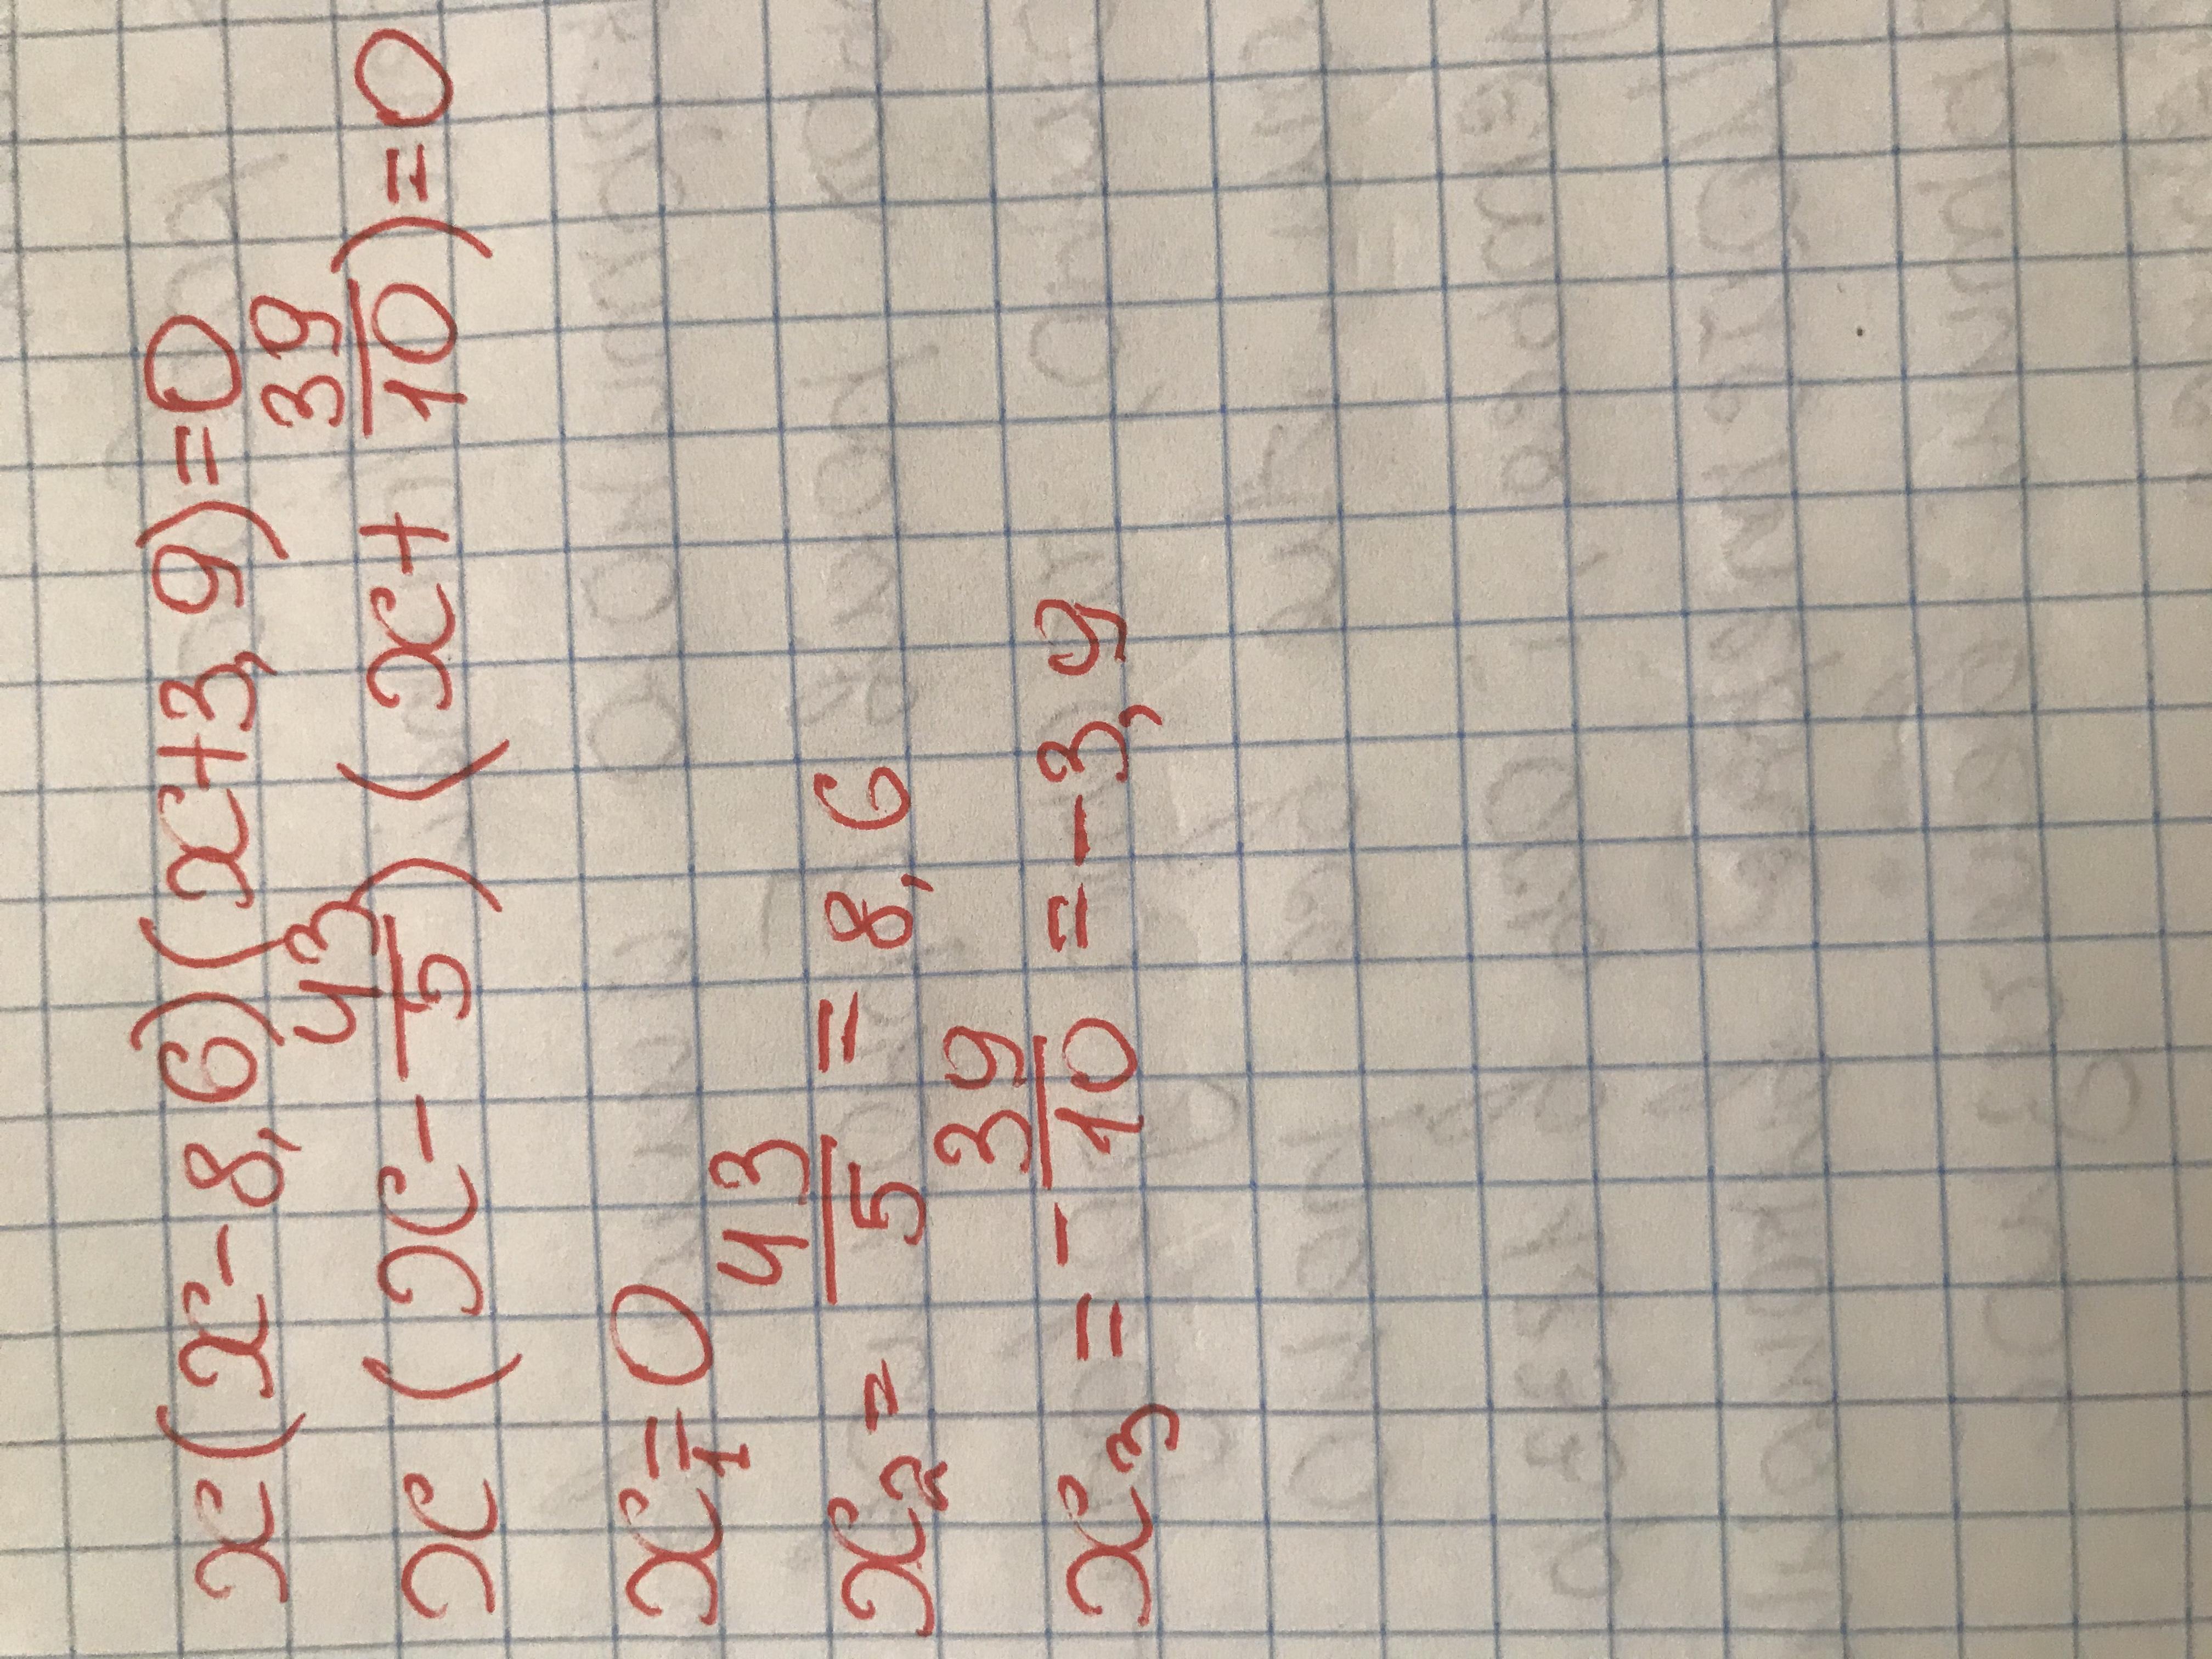 x(x-8,6)(x+3,9)=0
x(x-43/5)(x+39/10)=0
x₁=0
x₂=43/5=8,6
x₃=-39/10=-3,9